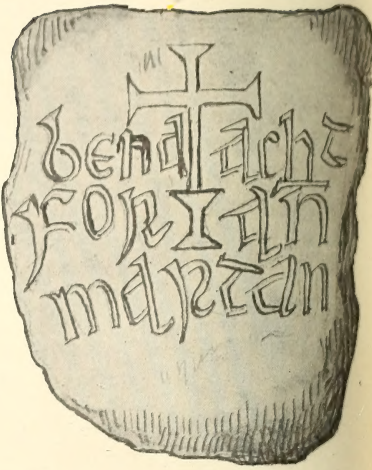 bendacht
for an̄
martan